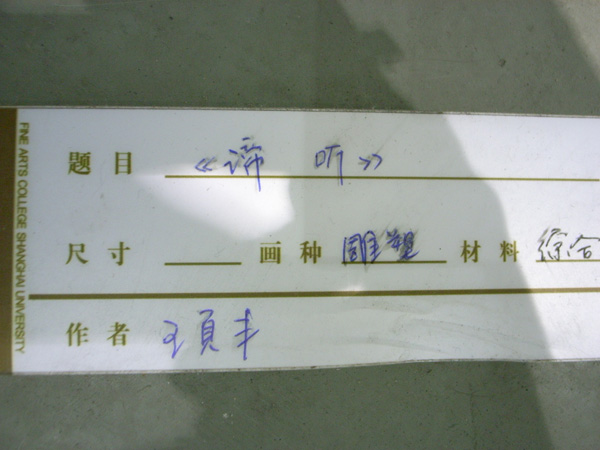 FINE ARTS COLLEGE SHANGHAI UNIVERSITY
题目 《谛 听》
尺寸 画种 雕塑 材料 综合
作者 王頁丰